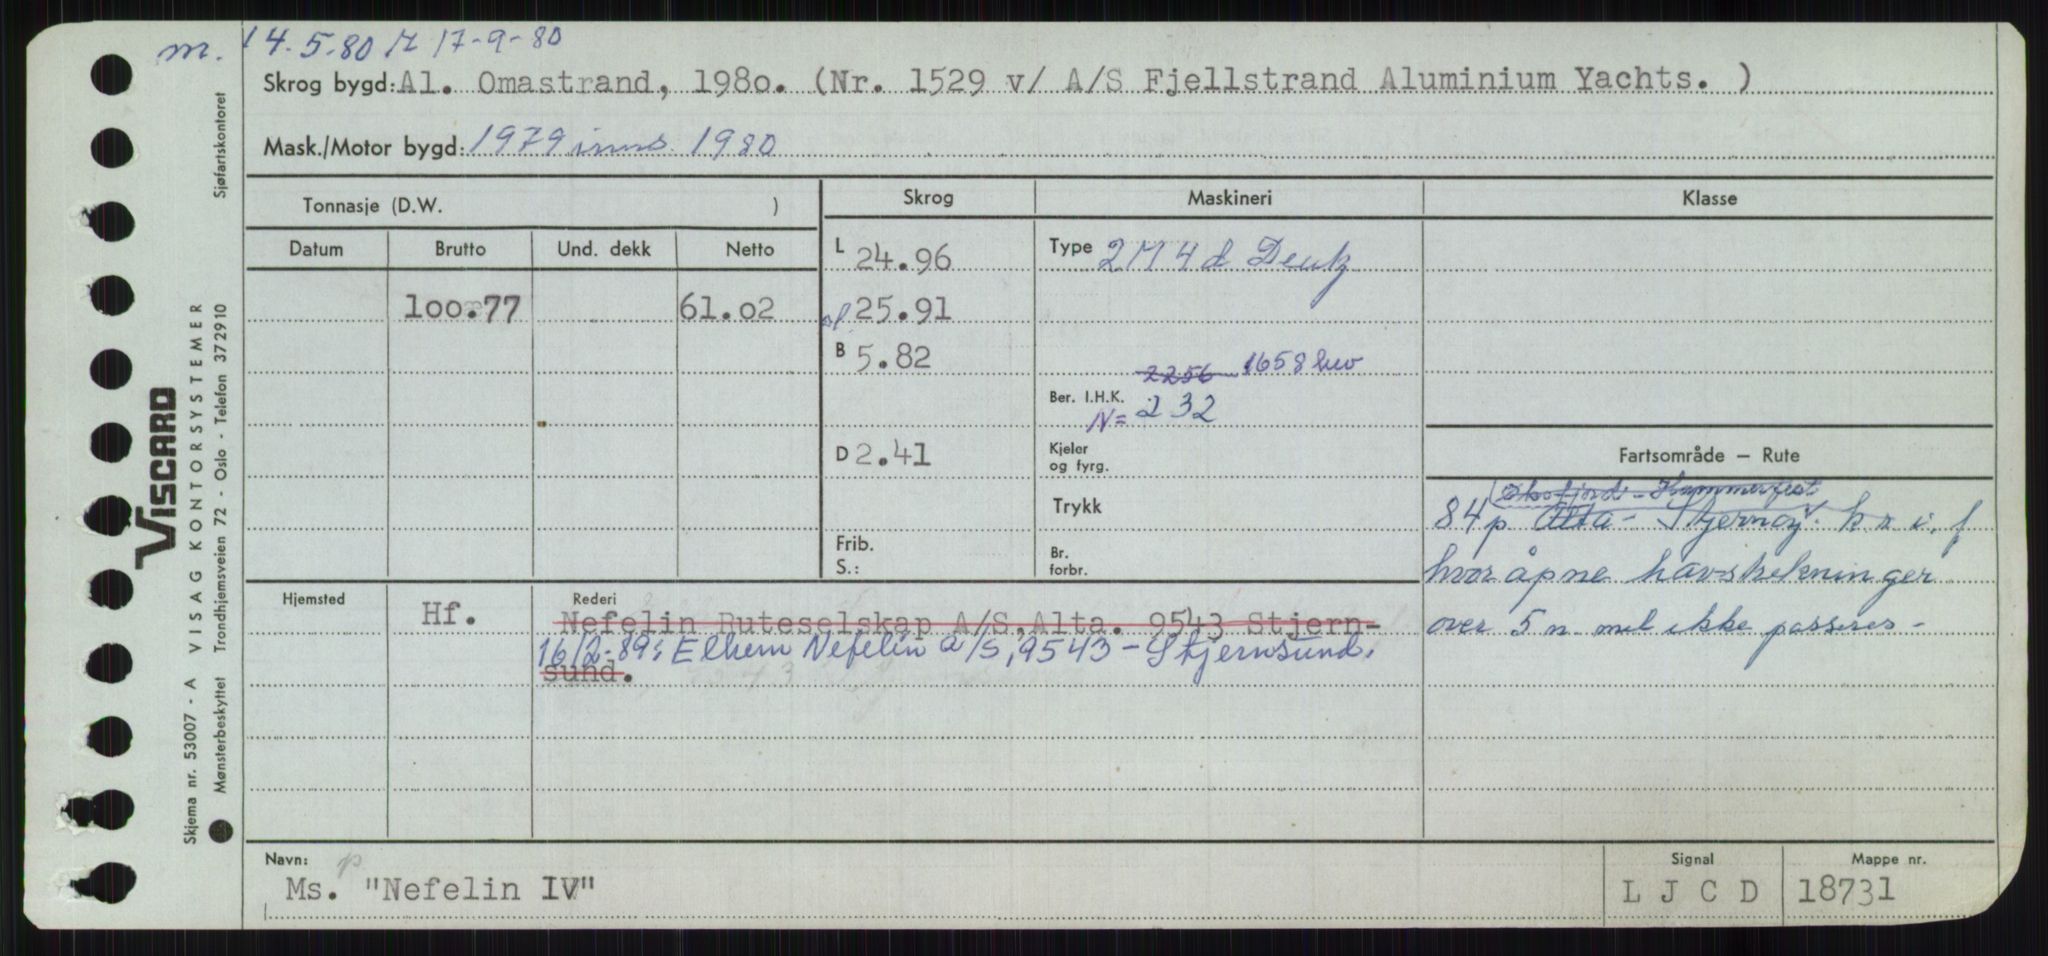 m. 14.5.80 M 17-9-80
Skrog bygd: Al. Omastrand, 1980. (Nr. 1529 v/ A/S Fjellstrand Aluminium Yachts. )
Mask./Motor bygd: 1979 inns. 1980
Tonnasje (D.W. )
Skrog
Maskineri
Klasse
Datum Brutto Und. dekk Netto
L 24.96
Type 2 M 4 d Deutz
100.77 61.02
al. 25.91
B 5.82
2256 1658 kw
Ber. I.H.K.
N= 232
D 2.41
Kjeler
og fyrg.
Trykk
Frib.
S.:
Br.
forbr.
Fartsområde – Rute
Øksfjord - Hammerfest
84 p Alta - Stjernøy. k n i. f
hvor åpne havstrekninger
over 5 n. mil ikke passeres -
Hjemsted
Hf.
Rederi
Nefelin Ruteselskap A/S, Alta. 9543 Stjern-
16/2-89: Elkem Nefelin a/s, 9543 - Stjernsund.
sund.
Navn: p
Ms. "Nefelin IV"
Signal
L J C D
Mappe nr.
18731
VISCARD
Skjema nr. 53007 - A VISAG KONTORSYSTEMER
Mønsterbeskyttet Trondhjemsveien 72 - Oslo - Telefon 372910
Sjøfartskontoret